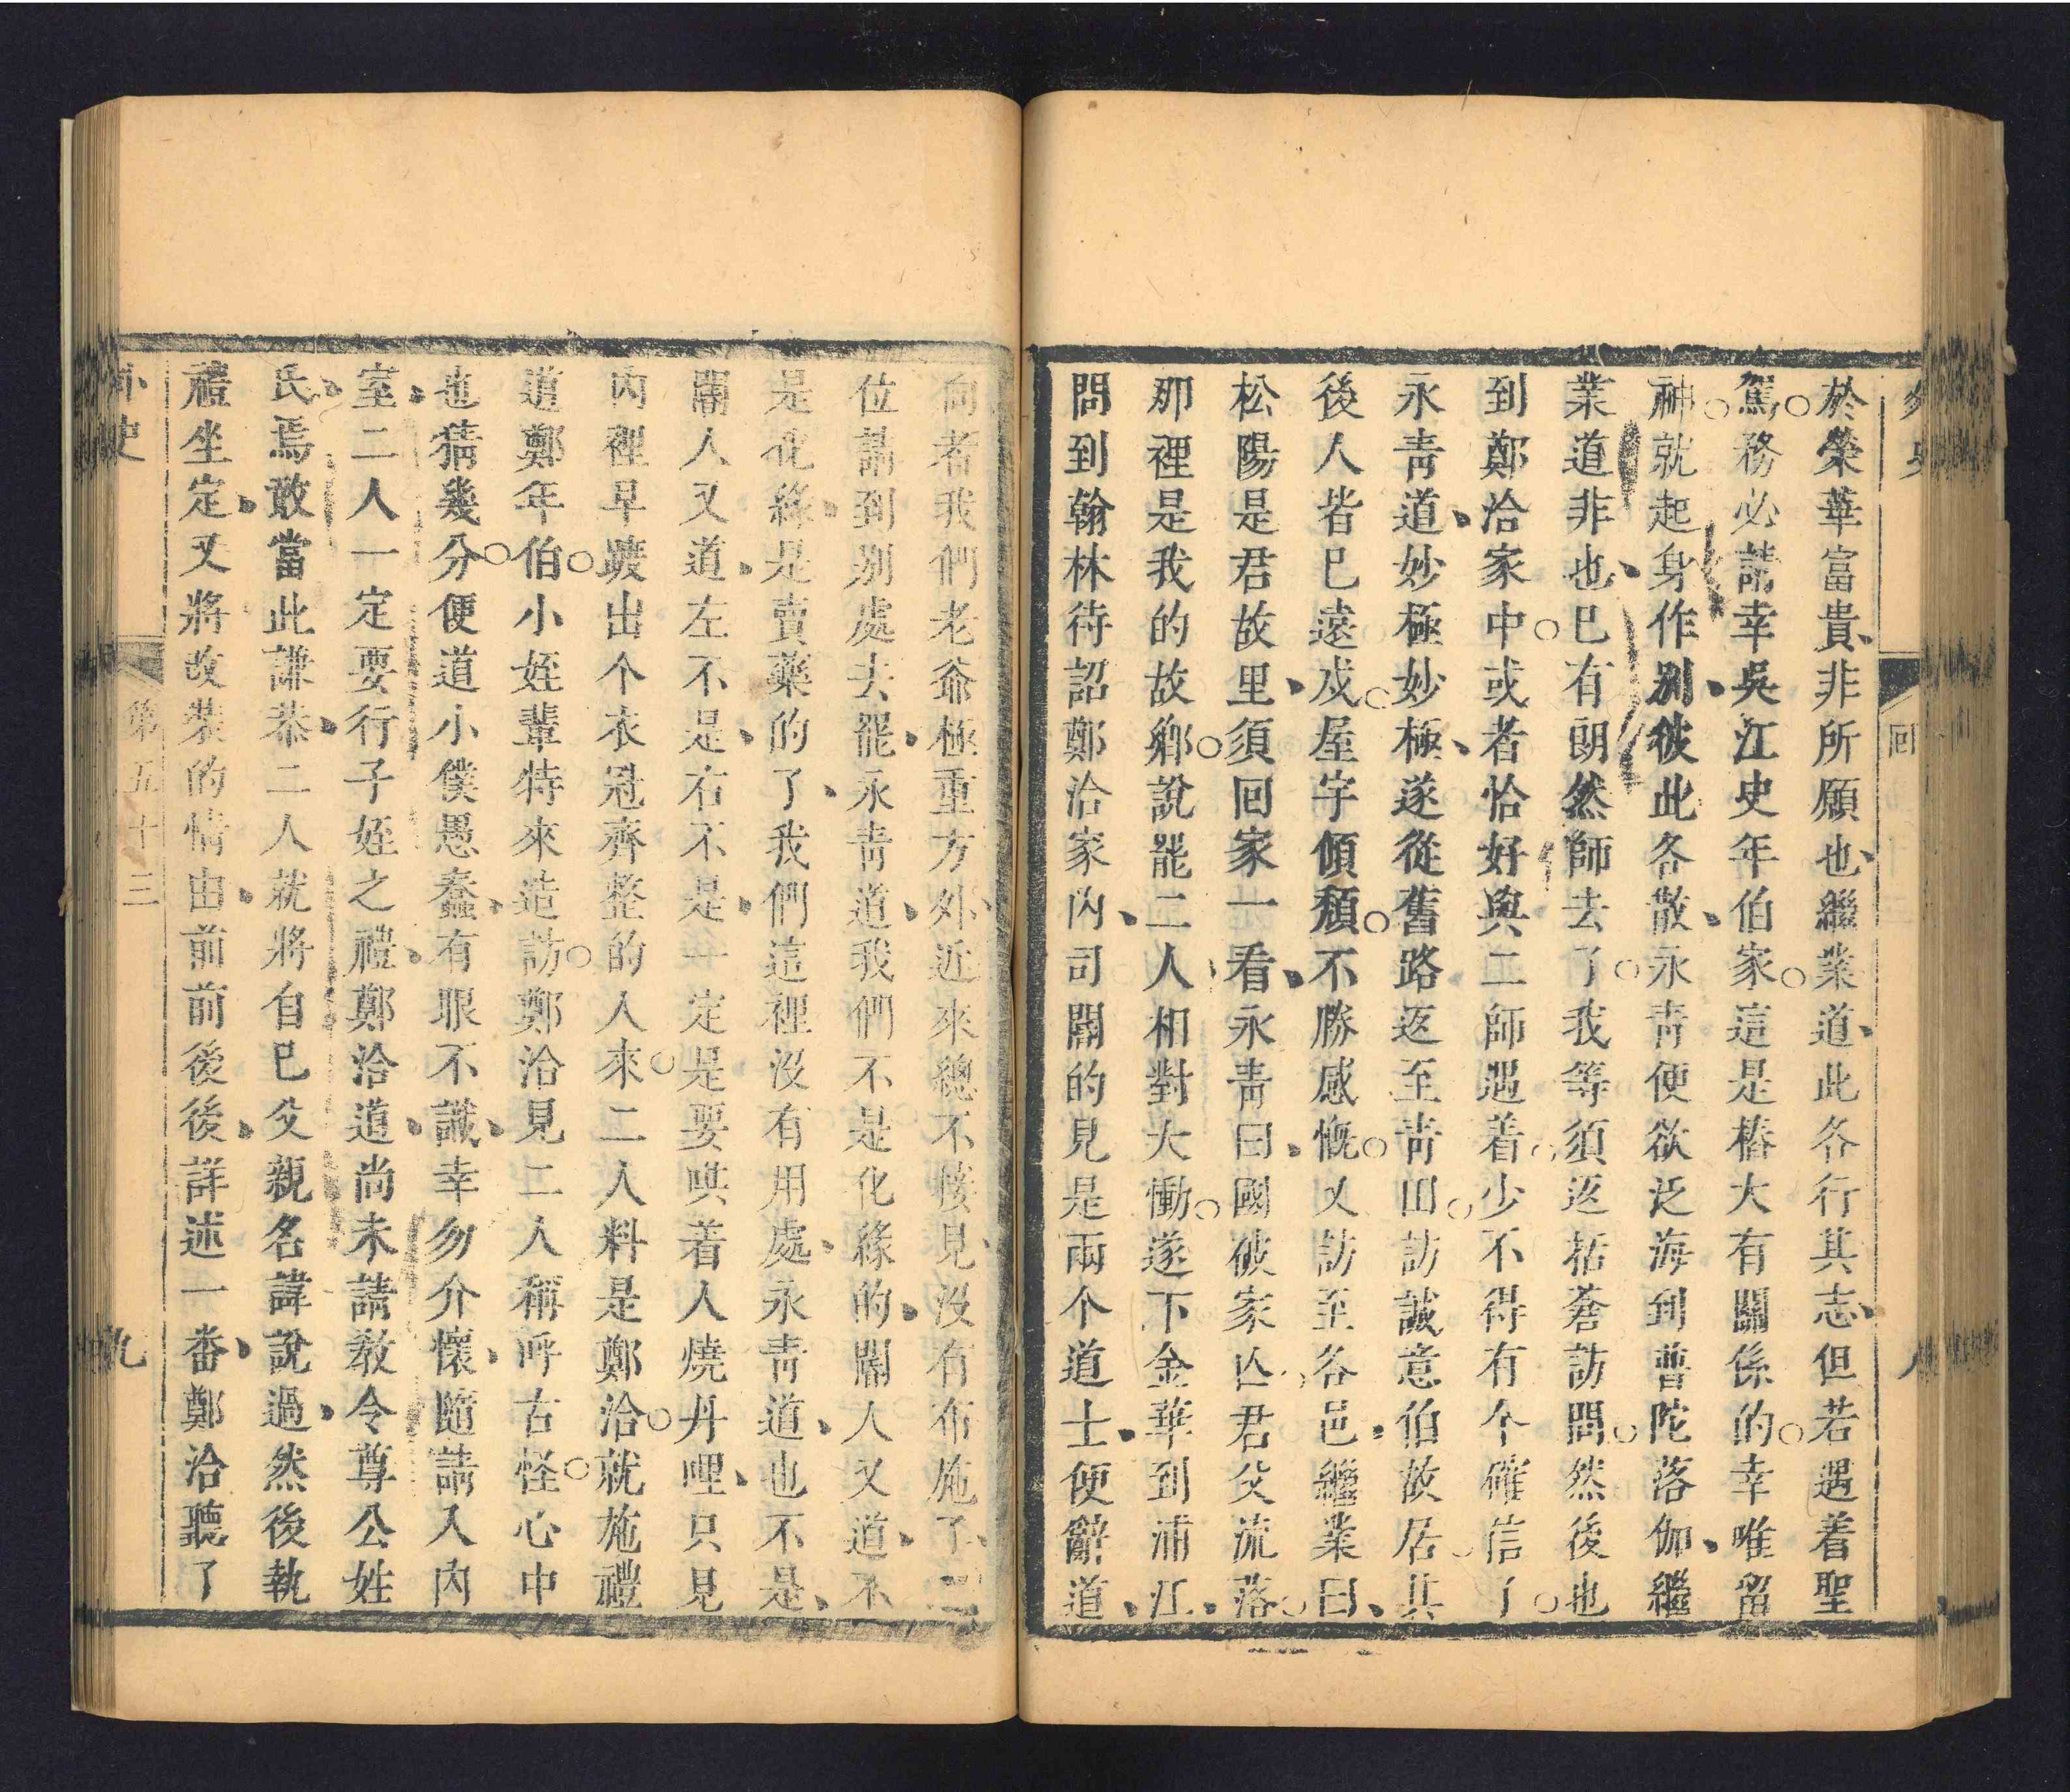 外史
回
八
於榮華富貴、非所願也、繼業道、此各行其志、但若遇着聖
駕○務必請幸吳江史年伯家○這是樁大有關係的○幸唯留
神○就起身作別、彼此各散、永靑便欲泛海到普陀落伽、繼
業道非也、已有朗然師去了○我等須返括蒼訪問○然後也
到鄭洽家中○或者恰好與二師遇着○少不得有个確信了○
永靑道、妙極妙極、遂從舊路返至靑田○訪誠意伯故居○其
後人皆已遠戍○屋宇傾頹○不勝感慨○又訪至各邑、繼業曰、
松陽是君故里、須回家一看、永靑曰、國破家亾○君父流落○
那裡是我的故鄕○說罷二人相對大慟○遂下金華到浦江、
問到翰林待詔鄭洽家內、司閽的見是兩个道士、便辭道、
向者我們老爺極重方外、近來總不接見、沒有布施了、二
位請到別處去罷、永靑道、我們不是化緣的、閽人又道、不
是化緣、是賣藥的了、我們這裡沒有用處、永靑道、也不是、
閽人又道、左不是、右不是、一定是要哄着人燒丹哩、只見
內裡早踱出个衣冠齊整的人來○二人料是鄭洽○就施禮
道鄭年伯○小姪輩特來造訪○鄭洽見二人稱呼古怪○心中
也猜幾分○便道小僕愚蠢、有眼不識、幸勿介懷、隨請入內
室、二人一定要行子姪之禮、鄭洽道、尚未請敎令尊公姓
氏、焉敢當此謙恭、二人就將自已父親名諱說過、然後執
禮坐定、又將改裝的情由、前前後後、詳述一番、鄭洽聽了
外史
第五十三
九